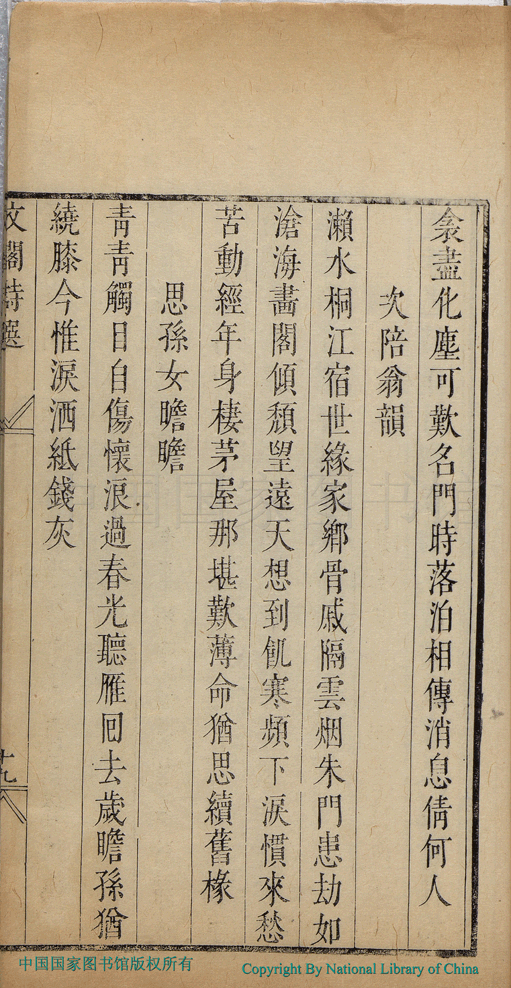 衾盡化塵可歎名門時落泊相傳消息倩何人
次陪翁韻
瀨水桐江宿世緣家鄉骨戚隔雲烟朱門患劫如
滄海畫閣傾頹望遠天想到飢寒頻下淚慣來愁
苦動經年身棲茅屋那堪歎薄命猶思續舊椽
思孫女瞻瞻
青青觸目自傷懷浪過春光聽雁回去歲瞻孫猶
繞膝今惟淚洒紙錢灰
文閣詩選
十九
中国国家图书馆版权所有
Copyright By National Library of China